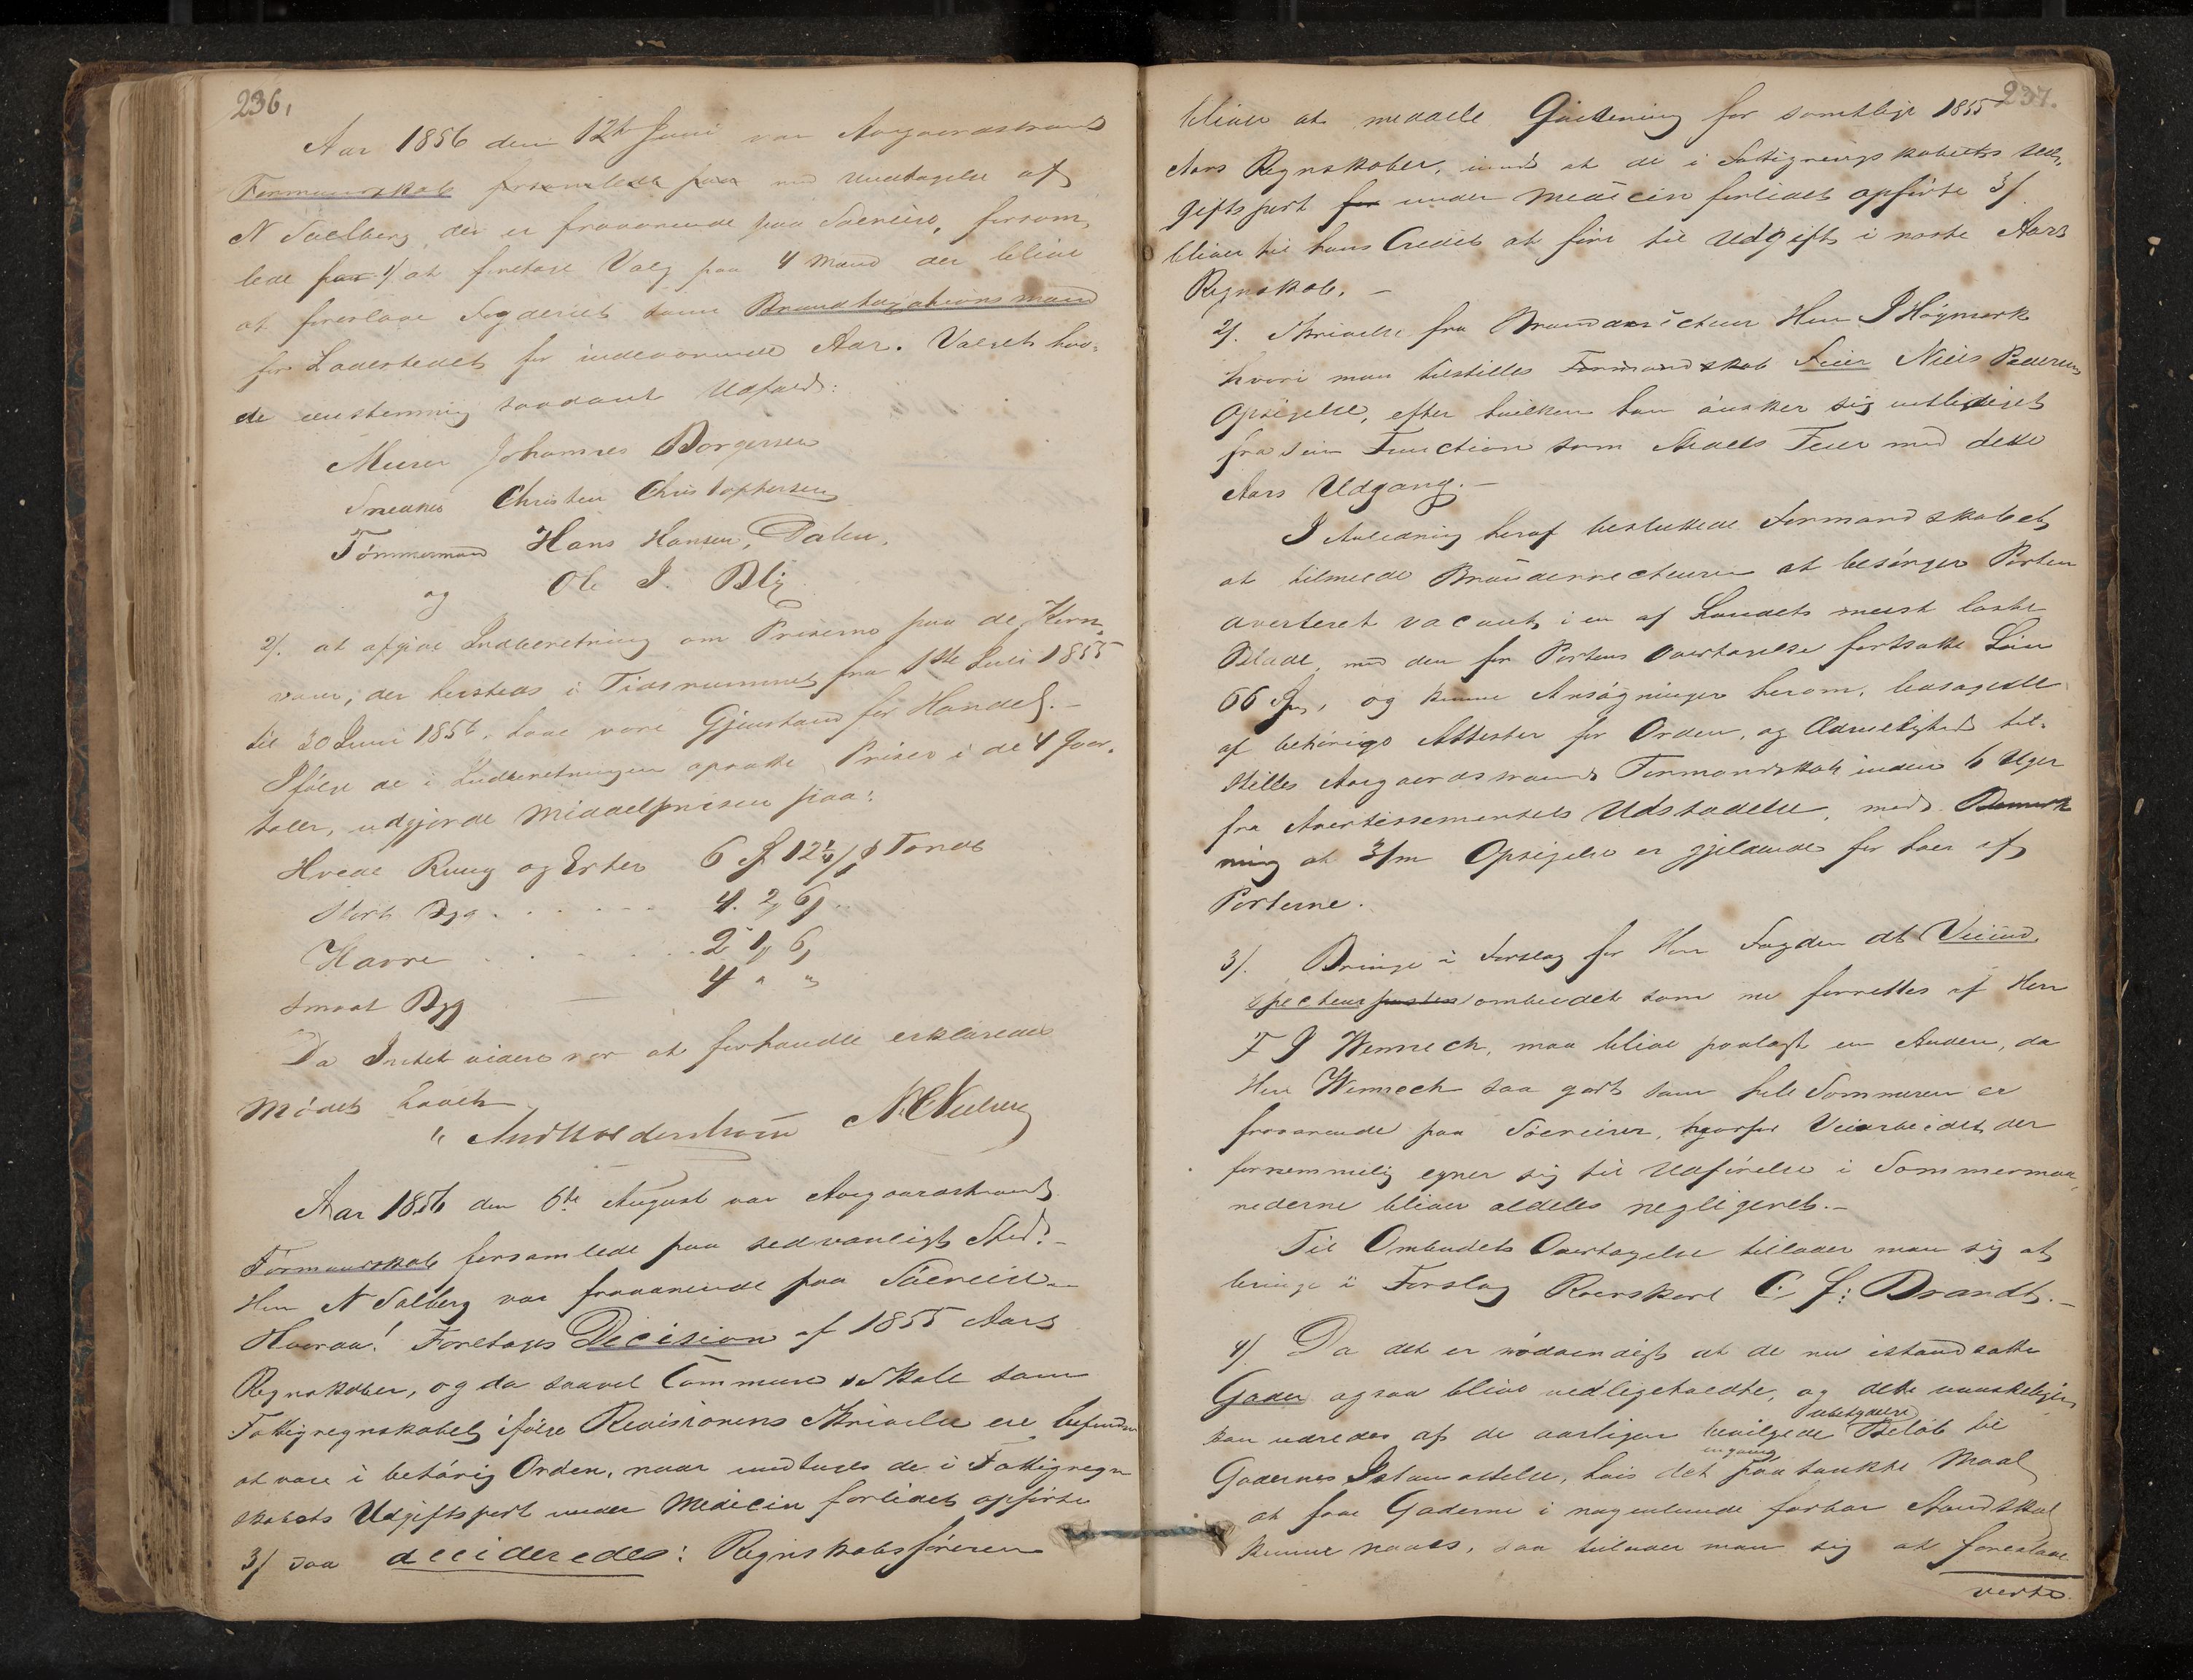 236,
Aar 1856 den 12te Juni var Aasgaardstrands
Formandskab forsamlede paa med Undtagelse af
N Solberg, der er fraværende paa Søereise, forsam,
lede for 1/ at foretage Valg paa 4 Mænd der bliver
at foreslaae Fogderiet som Brandtaxationsmænd
for Ladestedet for indeværende Aar. Valget hav-
de eenstemmig saadant Udfald:
Murer Johannes Borgersen
Snedker Christen Christophersen
Tømmermand Hans Hansen, Dalen,
og Ole J. Bly
2/. at afgive Indberetning om Priserne paa de Korn,
varer, der hersteds i Tidsrummet fra 1ste Juli 1855
til 30 Juni 1856, have været Gjenstand for Handel. –
Ifølge de i Indberetningen opsatte Priser i de 4 Qvar,
taler, udgjorde Middelprisen paa:
Hvede Rug og Erter 6 12½ Tønde
Stort Byg . . . . . . 4. 2, 6
Havre . . . . . . 2 1, 6,
Smaat Byg — 4 " "
Da Intet videre var at forhandle erklæredes
Mødet hævet
Aar 1856 den 6te August var Aasgaardstrands
Formandskab forsamlede paa sedvanligt Sted. –
Herr N Solberg var fraværende paa Søereise
Hvoraa! Foretoges Decision af 1855 Aars
Regnskaber, og da saavel Commune Skole som
Fattigregnskabet ifølge Revisionens Skrivelse ere befundne
at være i behørig Orden, naar undtages de i Fattigregn
skabets Udgiftspost under Medicin forlidet opførte
3/ saa decideredes: Regnskabsføreren
237.
bliver at meddele Qvittering for samtlige 1855
Aars Regnskaber, imod at de i Fattigregnskabets Ud,
giftspost for under Medicin forlidet opførte 3/
bliver til hans Credit at føre til Udgift i næste Aars
Regnskab. –
2/. Skrivelse fra Branddirecteur Herr P Høymork
hvori man tilstilles Formandskab Feier Niels Pedersens
Opsigelse, efter hvilken han ønsker sig entlediget
fra sin Function som Stads Feier med dette
Aars Udgang. –
I Anledning heraf besluttede Formandskabet
at tilmelde Branddirecteuren at besørge Posten
averteret vacant, i en af Landets meest læste
Blade, med den for Postens Overtagelse fortsatte Løn
66 Spd, og kunne Ansøgninger herom, ledsagede
af behørige Attester for Orden, og Ædruelighed til,
stilles Aasgaardstrands Formandskab inden 6 Uger
fra Avertissementets Udstædelse, med Bemærk
ning at 3/m Opsigelse er gjeldende for hver af
Posterne.
3/. Bringe i Forslag for Herr Fogden at Veiind,
specteurposten ombudet som nu forrettes af Herr
F J Wennech, maa blive paalagt en Anden, da
Herr Wennech saa godt som hele Sommeren er
fraværende paa Søereiser, hvorfor Veiarbeidet der
fornemmelig egner sig til Udførelse i Sommermaa,
nederne bliver aldeles negligeret. –
Til Ombudets Overtagelse tillader man sig at
bringe i Forslag C. f: Brandt. –
4/. Da det er nødvendigt at de nu istandsatte
Gader ogsaa blive vedligeholdte, og dette vanskeligen
kan udredes af de aarligen bevilgede ubetydelige Beløb til
Gadernes Istandsettelse, hvis det engang paatænkte Maal
at faae Gaderne i nogenlunde farbar Stand skal
kunne naaes, saa tillader man sig at foreslaae
verte